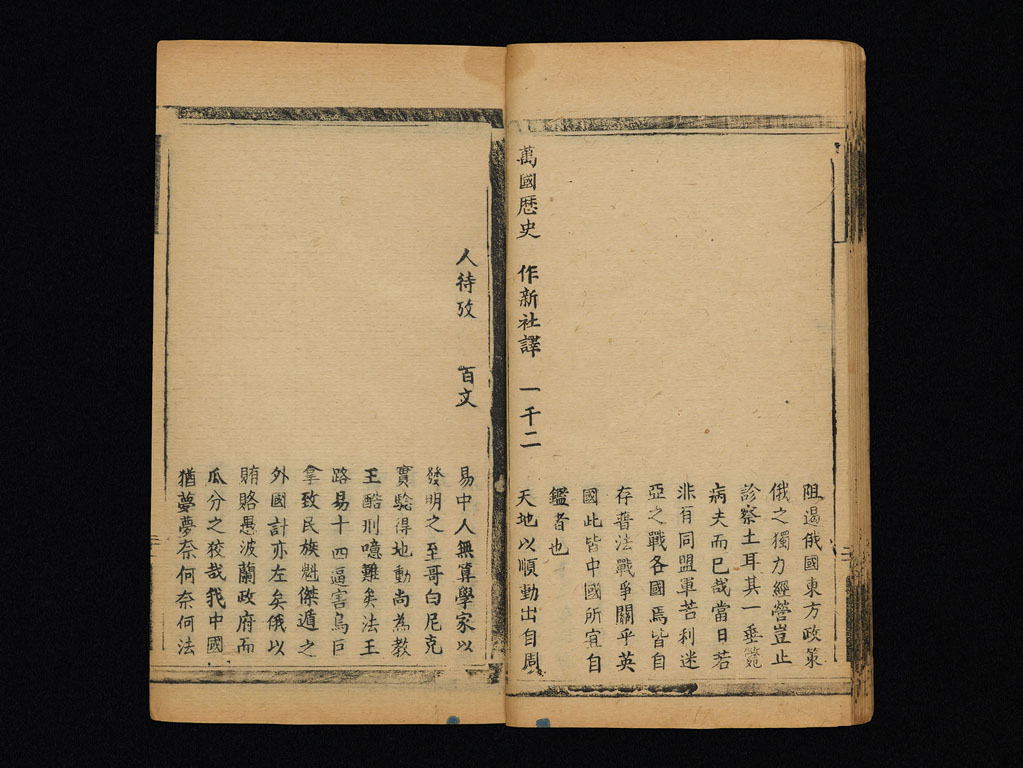 阻遏俄國東方政策
俄之獨力經營豈止
診察土耳其一垂斃
病夫而已哉當日若
非有同盟軍苦利迷
亞之戰各國焉皆自
存普法戰爭關乎英
國此皆中國所宜自
鑑者也
萬國歴史 作新社譯 一千二 天地以順動出自周
人待攷 百文 易中人無算學家以
發明之至哥白尼克
實驗得地動尚為教
王酷刑噫難矣法王
路易十四逼害烏巨
拿致民族魁傑遁之
外國計亦左矣俄以
賄賂愚波蘭政府而
瓜分之狡哉我中國
猶夢夢奈何奈何法